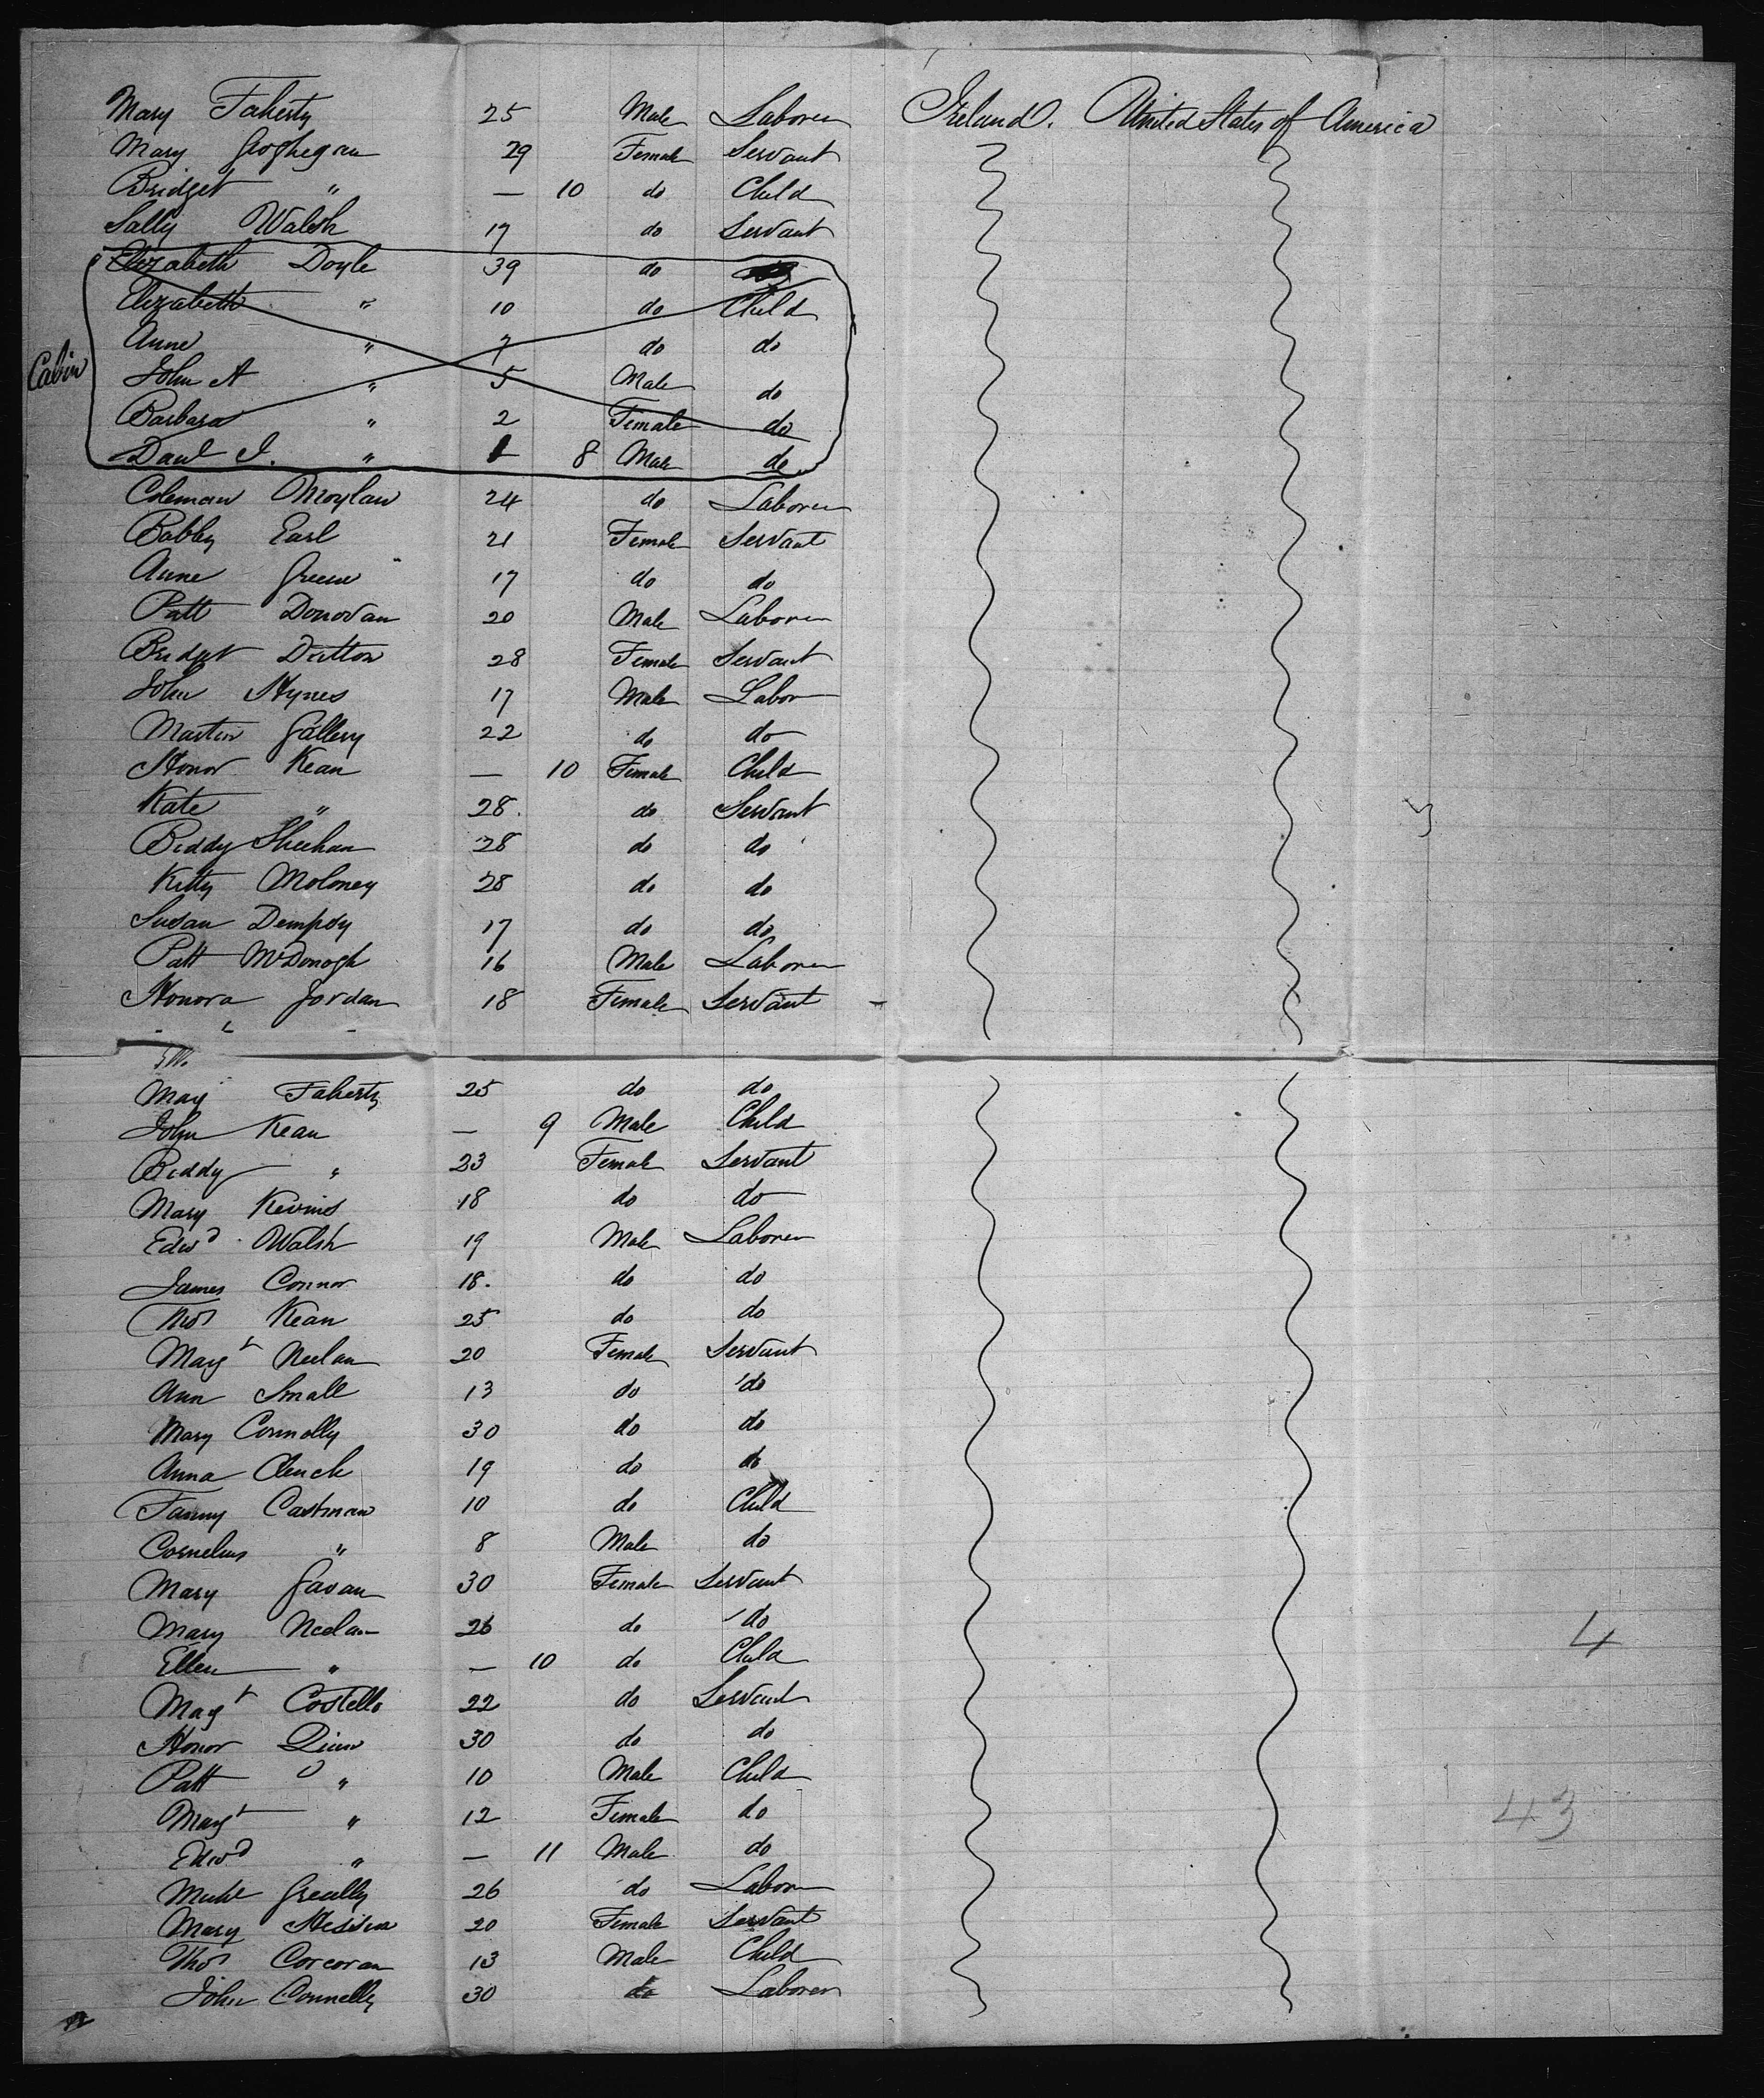 Mary Faherty 25 Male Laborer Ireland. United States of America
Mary Goghegan 29 Female Servant
Bridget " — 10 do Child
Sally Walsh 17 do Servant
Elizabeth Doyle 39 do
Elizabeth " 10 do Child
Anne " 7 do do
Cabin
John A " 5 Male do
Barbara " 2 Female do
Paul J. " 8 Male do
Coleman Moylan 24 do Laborer
Babby Earl 21 Female Servant
Anne Green 17 do do
Patt Donovan 20 Male Laborer
Bridget Dutton 28 Female Servant
John Hynes 17 Male Labor
Martin Gallery 22 do do
Honor Kean — 10 Female Child
Kate " 28. do Servant
Biddy Sheehan 28 do do
Kitty Moloney 28 do do
Susan Dempsy 17 do do
Patt McDonogh 16 Male Laborer
Honora Jordan 18 Female Servant
May Faherty 25 do do
John Kean — 9 Male Child
Biddy " 23 Female Servant
Mary Kevins 18 do do
Edwd Walsh 19 Male Laborer
James Connor 18. do do
Thos Kean 25 do do
Margt Neelan 20 Female Servant
Ann Small 13 do do
Mary Connolly 30 do do
Anna Clench 19 do do
Fanny Castman 10 do Child
Cornelius " 8 Male do
Mary Gavan 30 Female Servant
Mary Neelan 26 do do 4
Ellen " — 10 do Child
Magt Costello 22 do Servant
Honor Quinn 30 do do
Patt " 10 Male Child
Margt " 12 Female do 43
Edwd " — 11 Male do
Michl Greally 26 do Labor
Mary Hession 20 Female Servant
Thos Corcoran 13 Male Child
John Connelly 30 do Laborer